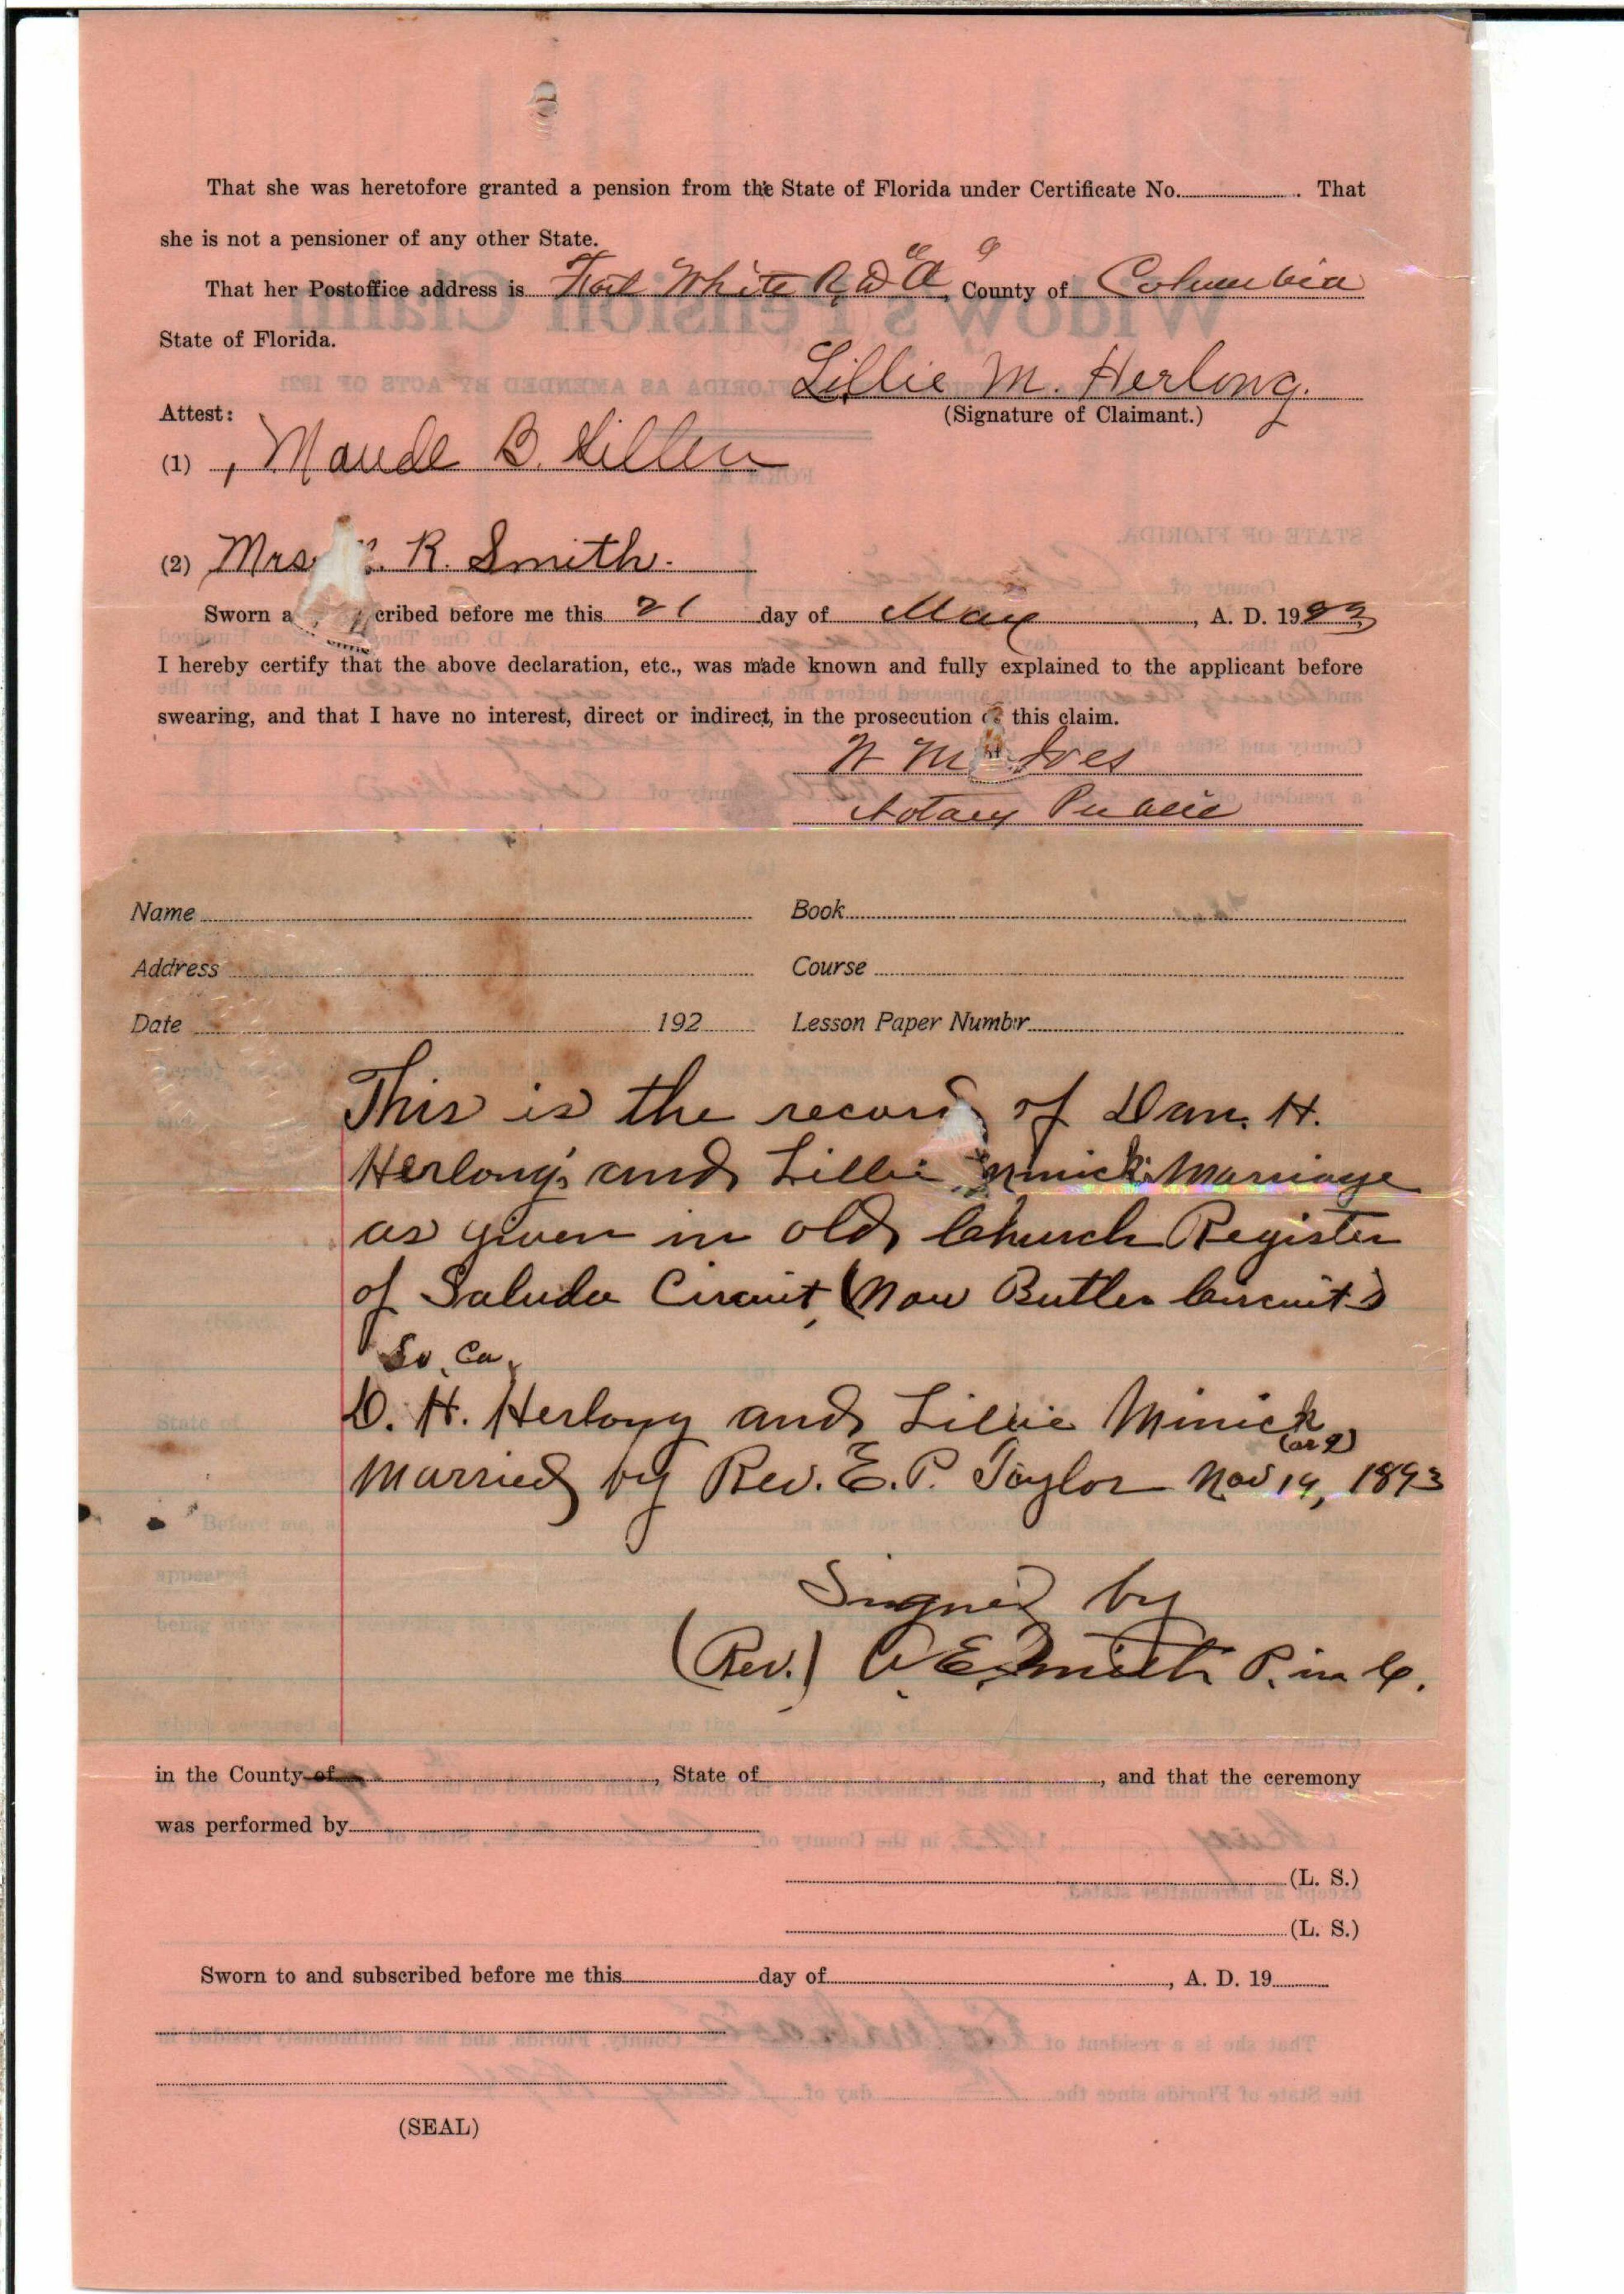 That she was heretofore granted a pension from the State of Florida under Certificate No. . That
she is not a pensioner of any other State.
That her Postoffice address is Fort White R. D "A", County of Columbia
State of Florida.
Lillie M. Herlong.
Attest: (Signature of Claimant.)
(1) Maude B.
(2) Mrs. R. Smith.
Sworn a cribed before me this 21 day of May, A. D. 1923
I hereby certify that the above declaration, etc., was made known and fully explained to the applicant before
swearing, and that I have no interest, direct or indirect, in the prosecution this claim.
W M Ives
Notary Public
Name Book
Address Course
Date 192 Lesson Paper Number
This is the record of Dan. H.
Herlong's and Lillie Minick's Marriage
as given in old Church Register
of Saluda Circuit, (Now Butler Circuit)
So. Ca.
D. H. Herlong and Lillie Minick
(or 9)
Married by Rev. E. P. Taylor Nov 14, 1893
Signed by
(Rev.) Smith P. in C.
in the County of , State of , and that the ceremony
was performed by
(L. S.)
(L. S.)
Sworn to and subscribed before me this day of , A. D. 19
(SEAL)